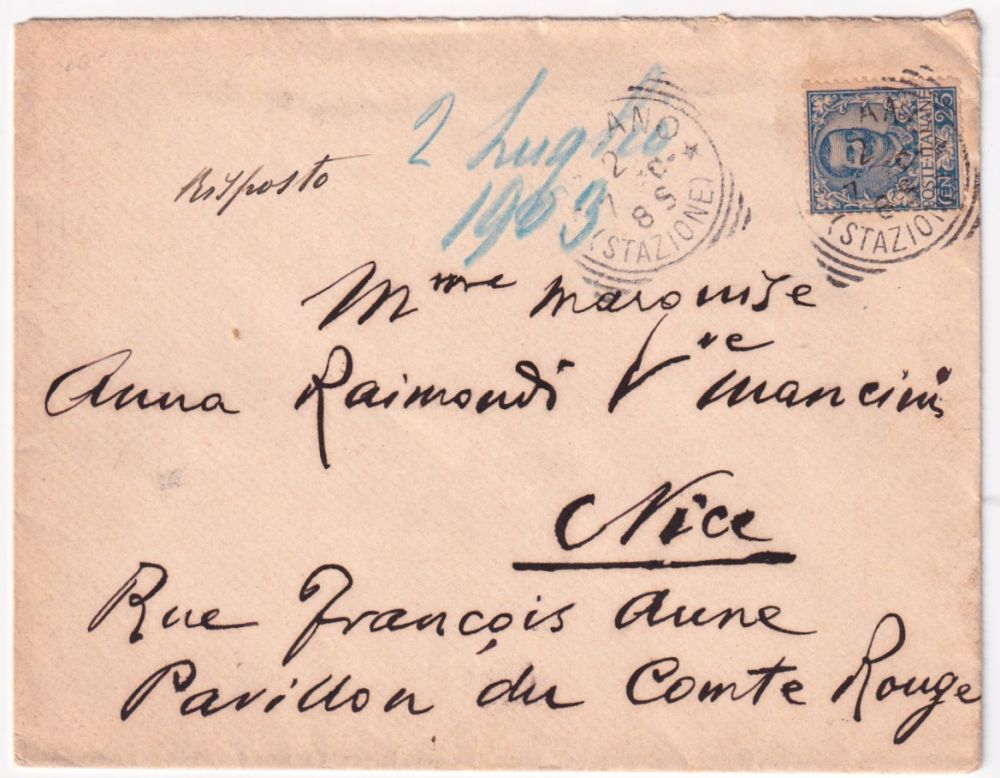 2 Luglio
1903
risposto
ANO
2
7
8 S
(STAZIONE)
POSTE ITALIANE
CEN 25
2
7
(STAZION
Mme Marquise
Anna Raimondi Vve Mancini
Nice
Rue François Aune
Pavillon du Comte Rouge